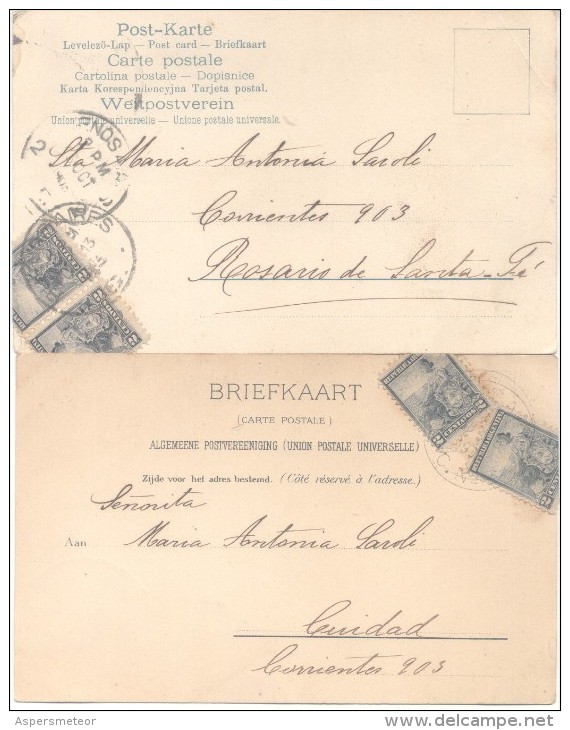 Post-Karte
Levelező-Lap — Post card — Briefkaart
Carte postale
Cartolina postale — Dopisnice
Karta Korespondencyjna Tarjeta postal.
Weltpostverein
Union postale universelle — Unione postale universale.
NOS
2 PM
OCT
AIRES
Sta Maria Antonia Saroli
Corrientes 903
Rosario de Santa-Fé
BRIEFKAART
(CARTE POSTALE)
ALGEMEENE POSTVEREENIGING (UNION POSTALE UNIVERSELLE)
Zijde voor het adres bestemd. (Côté réservé à l'adresse.)
Señorita
Aan Maria Antonia Saroli
Cuidad
Corrientes 903
2 CENTAVOS 2
REPUBLICA ARGENTINA
2 CENTAVOS 2
Aspersmeteor
delcampe.net